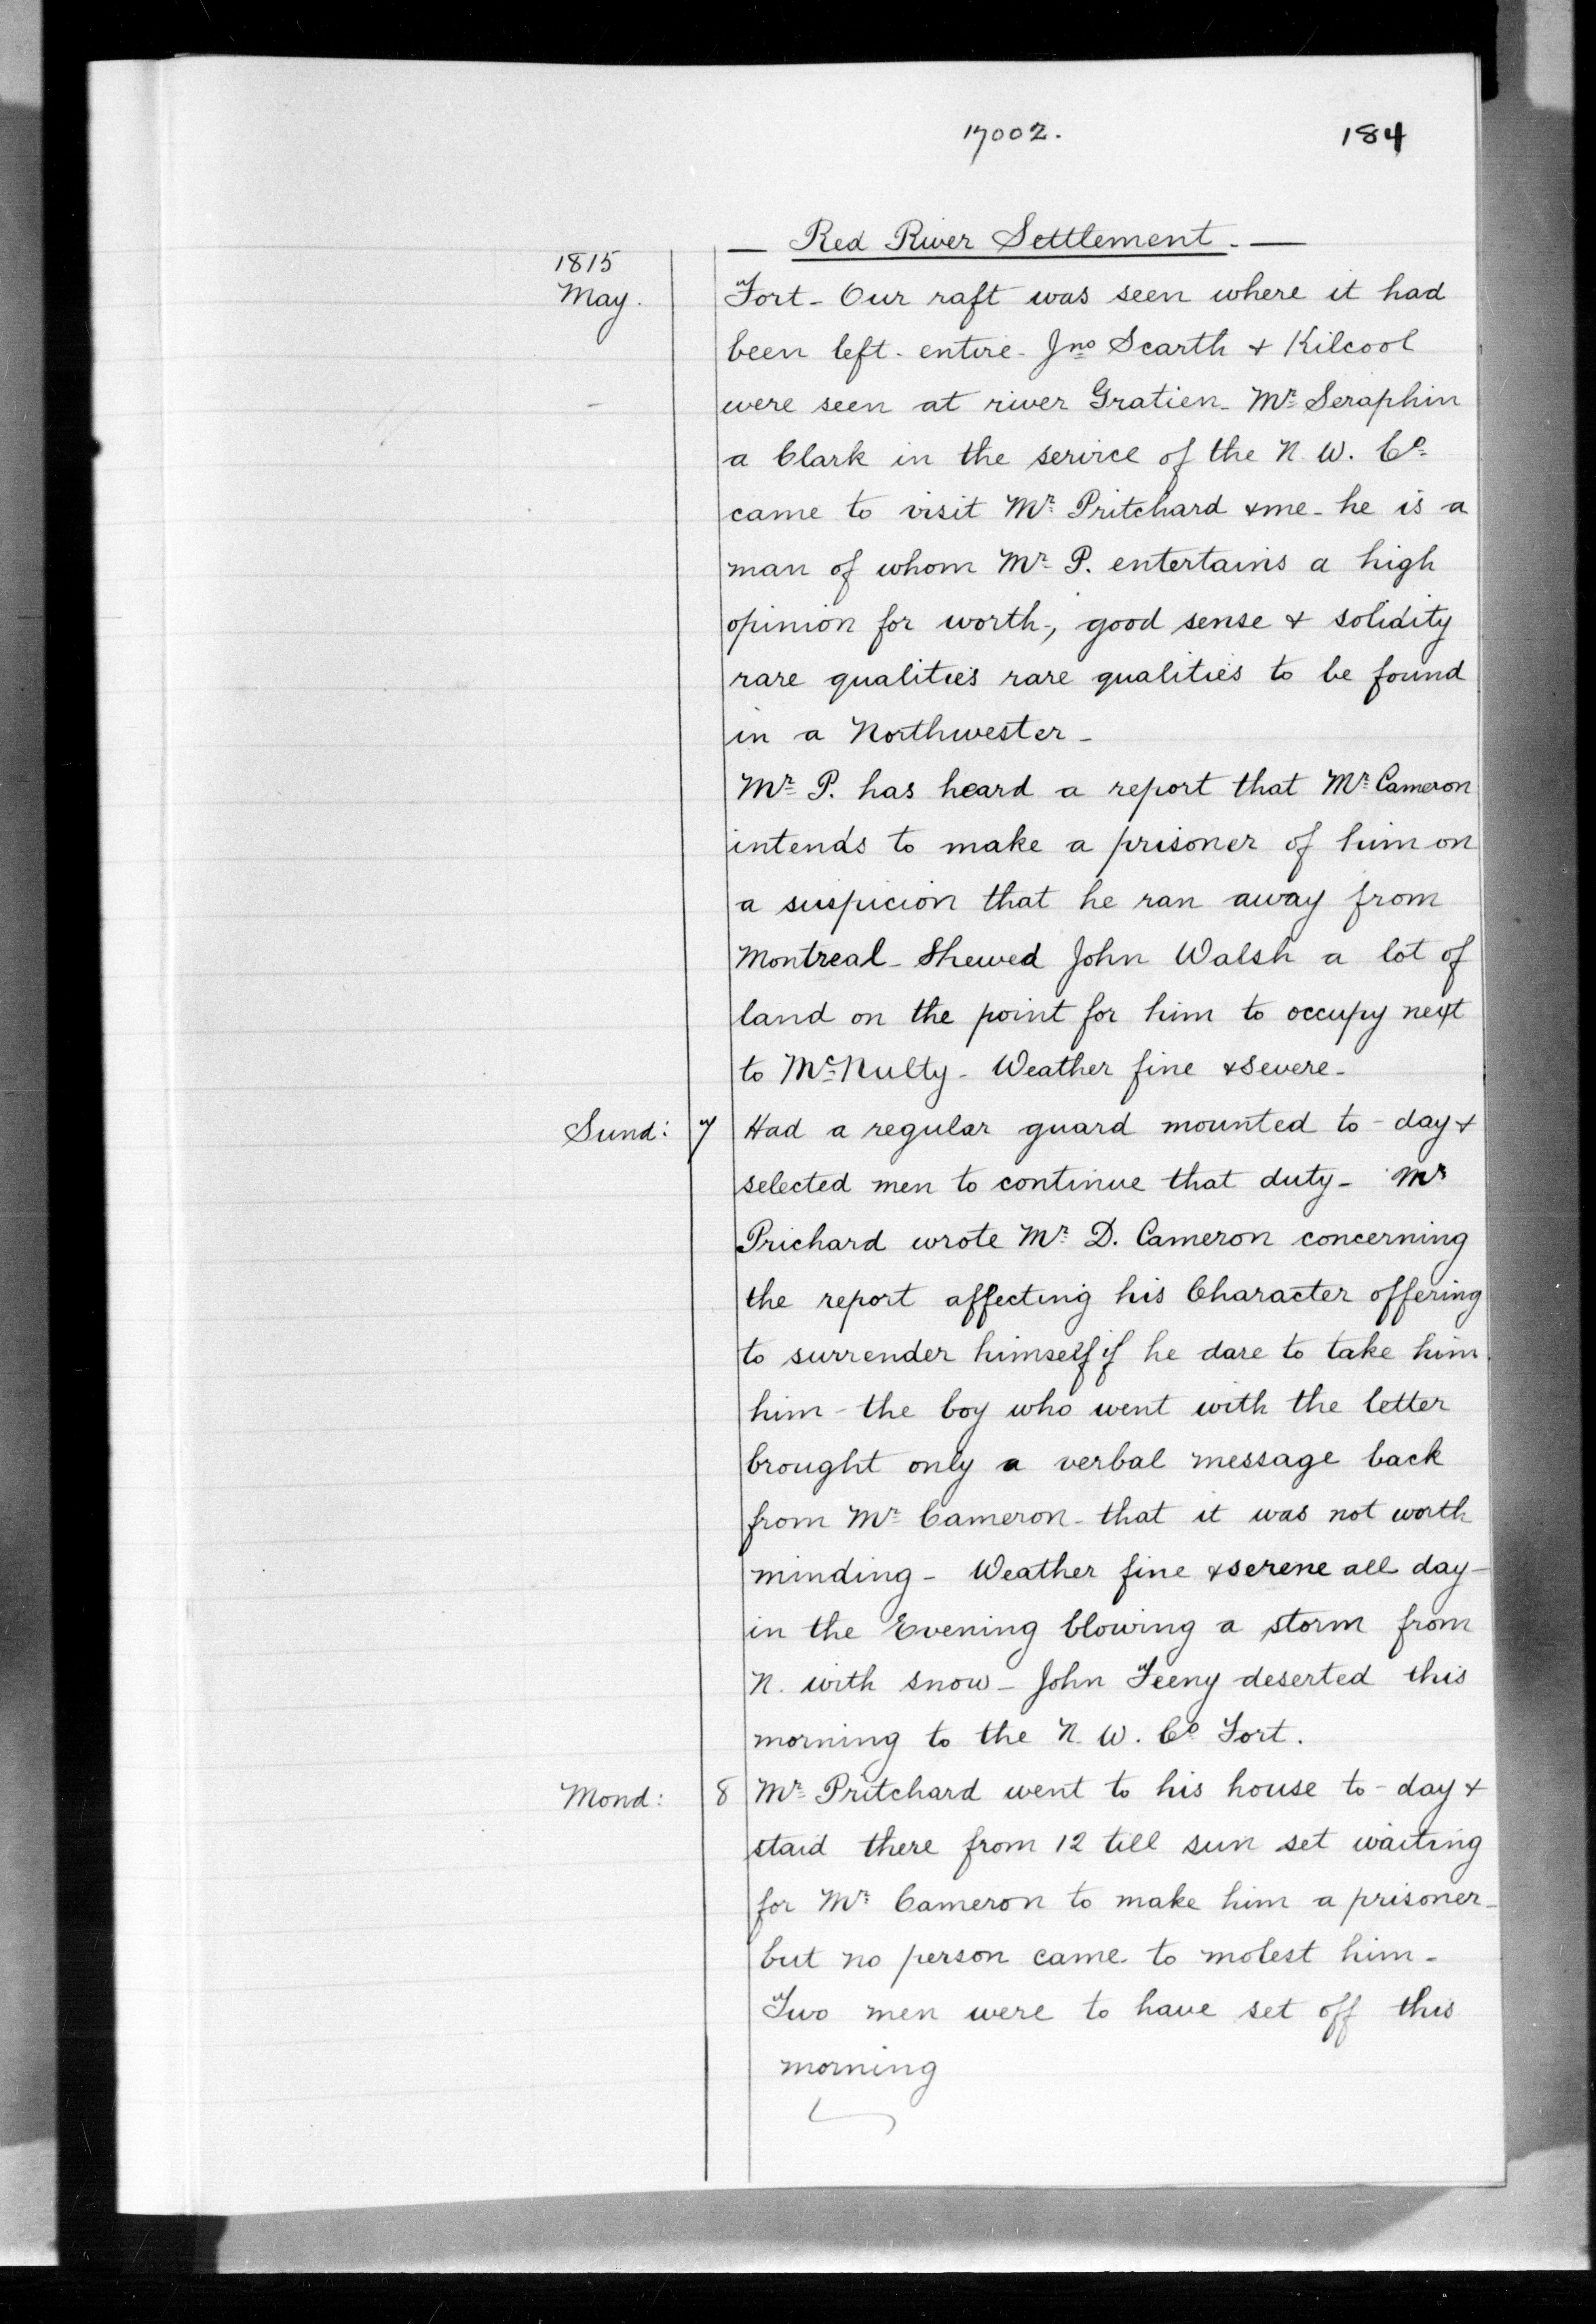 17002. 184
— Red River Settlement. —
1815
May. Fort - Our raft was seen where it had
been left - entire - Jno Scarth & Kilcool
were seen at river Gratien - Mr Seraphin
a Clark in the service of the N. W. Co
came to visit Mr Pritchard & me - he is a
man of whom Mr P. entertains a high
opinion for worth, good sense & solidity
rare qualities rare qualities to be found
in a Northwester -
Mr P. has heard a report that Mr Cameron
intends to make a prisoner of him on
a suspicion that he ran away from
Montreal - Shewed John Walsh a lot of
land on the point for him to occupy next
to McNulty - Weather fine & severe -
Sund: 7 Had a regular guard mounted to-day &
selected men to continue that duty - Mr
Prichard wrote Mr D. Cameron concerning
the report affecting his Character offering
to surrender himself if he dare to take him
him - the boy who went with the letter
brought only a verbal message back
from Mr Cameron - that it was not worth
minding - Weather fine & serene all day -
in the Evening blowing a storm from
N. with snow - John Feeny deserted this
morning to the N. W. Co Fort.
Mond: 8 Mr Pritchard went to his house to-day &
staid there from 12 till sun set waiting
for Mr Cameron to make him a prisoner -
but no person came to molest him -
Two men were to have set off this
morning